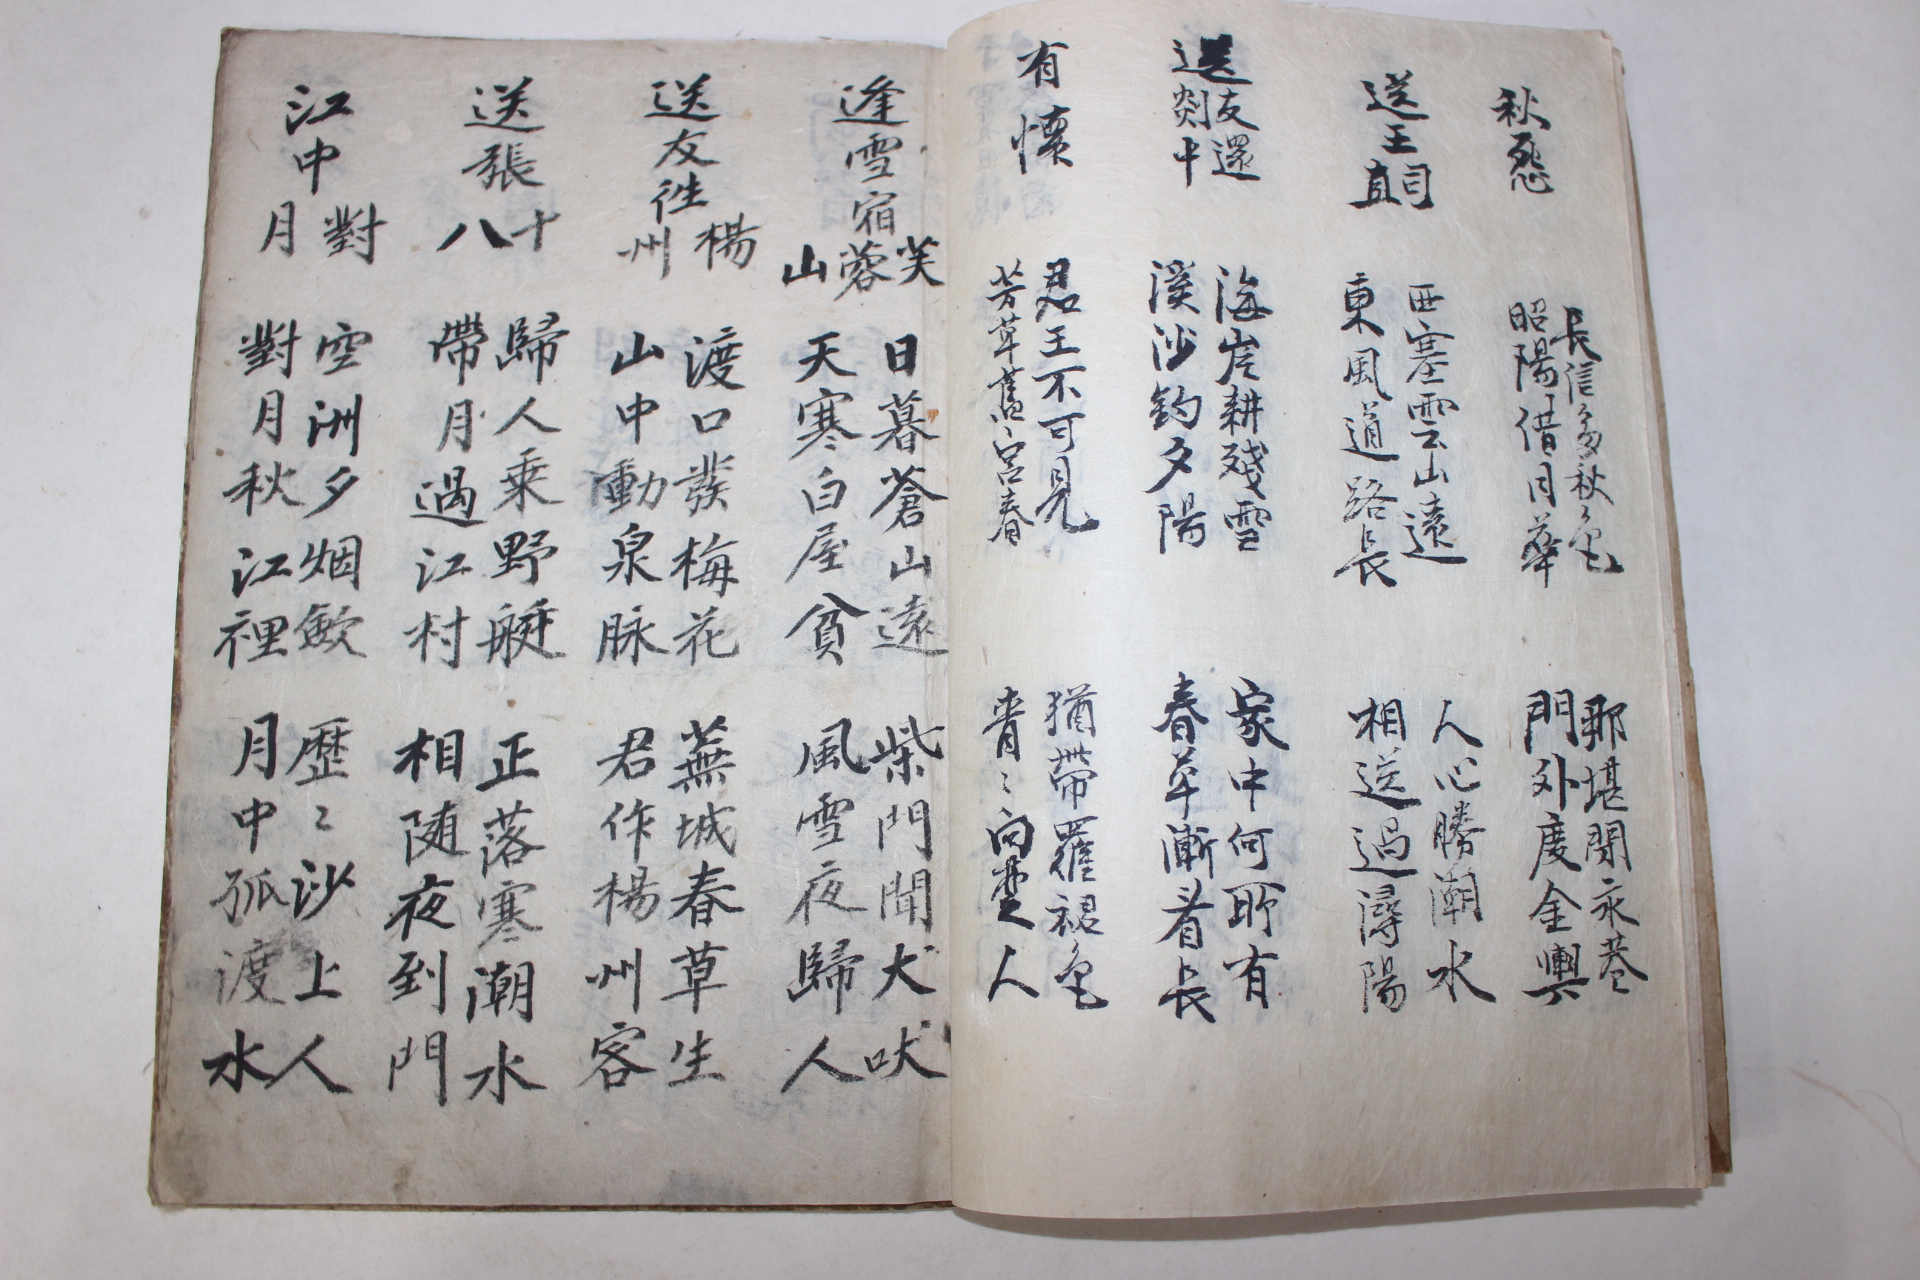 秋怨
長信多秋色
昭陽借月華
那堪閉永巷
門外度金輿
送王司直
西塞雲山遠
東風道路長
人心勝潮水
相送過潯陽
送友還剡中
海岸耕殘雪
溪沙釣夕陽
家中何所有
春草漸看長
有懷
君王不可見
芳草舊宮春
猶帶羅裙色
青〻向楚人
逢雪宿芙蓉山
日暮蒼山遠
天寒白屋貧
柴門聞犬吠
風雪夜歸人
送友往楊州
渡口發梅花
山中動泉脉
蕪城春草生
君作楊州客
送張十八
歸人乘野艇
帶月過江村
正落寒潮水
相随夜到門
江中對月
空洲夕烟歛
對月秋江裡
歷〻沙上人
月中孤渡水